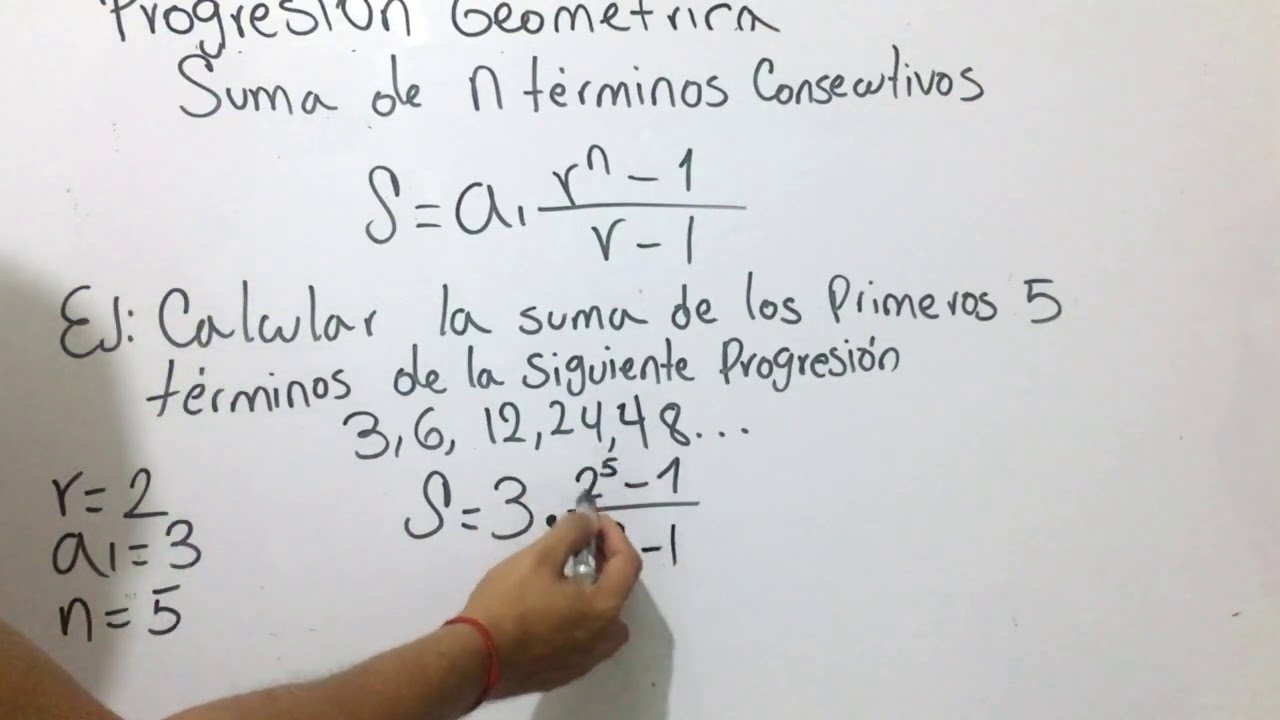 Progresión Geometrica
Suma de n términos Consecutivos
S = a₁ (rⁿ - 1)/(r - 1)
EJ: Calcular la suma de los Primeros 5
términos de la siguiente Progresión
3, 6, 12, 24, 48...
r = 2
a₁ = 3
n = 5
S = 3 · (2⁵ - 1)/( - 1)